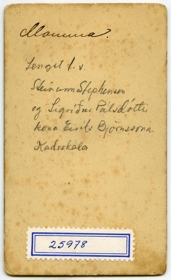 Mamma.
Lengst t. v.
Steinunn Stephensen
og Sigríður Pálsdóttir
kona Eiríks Björnssona
25978